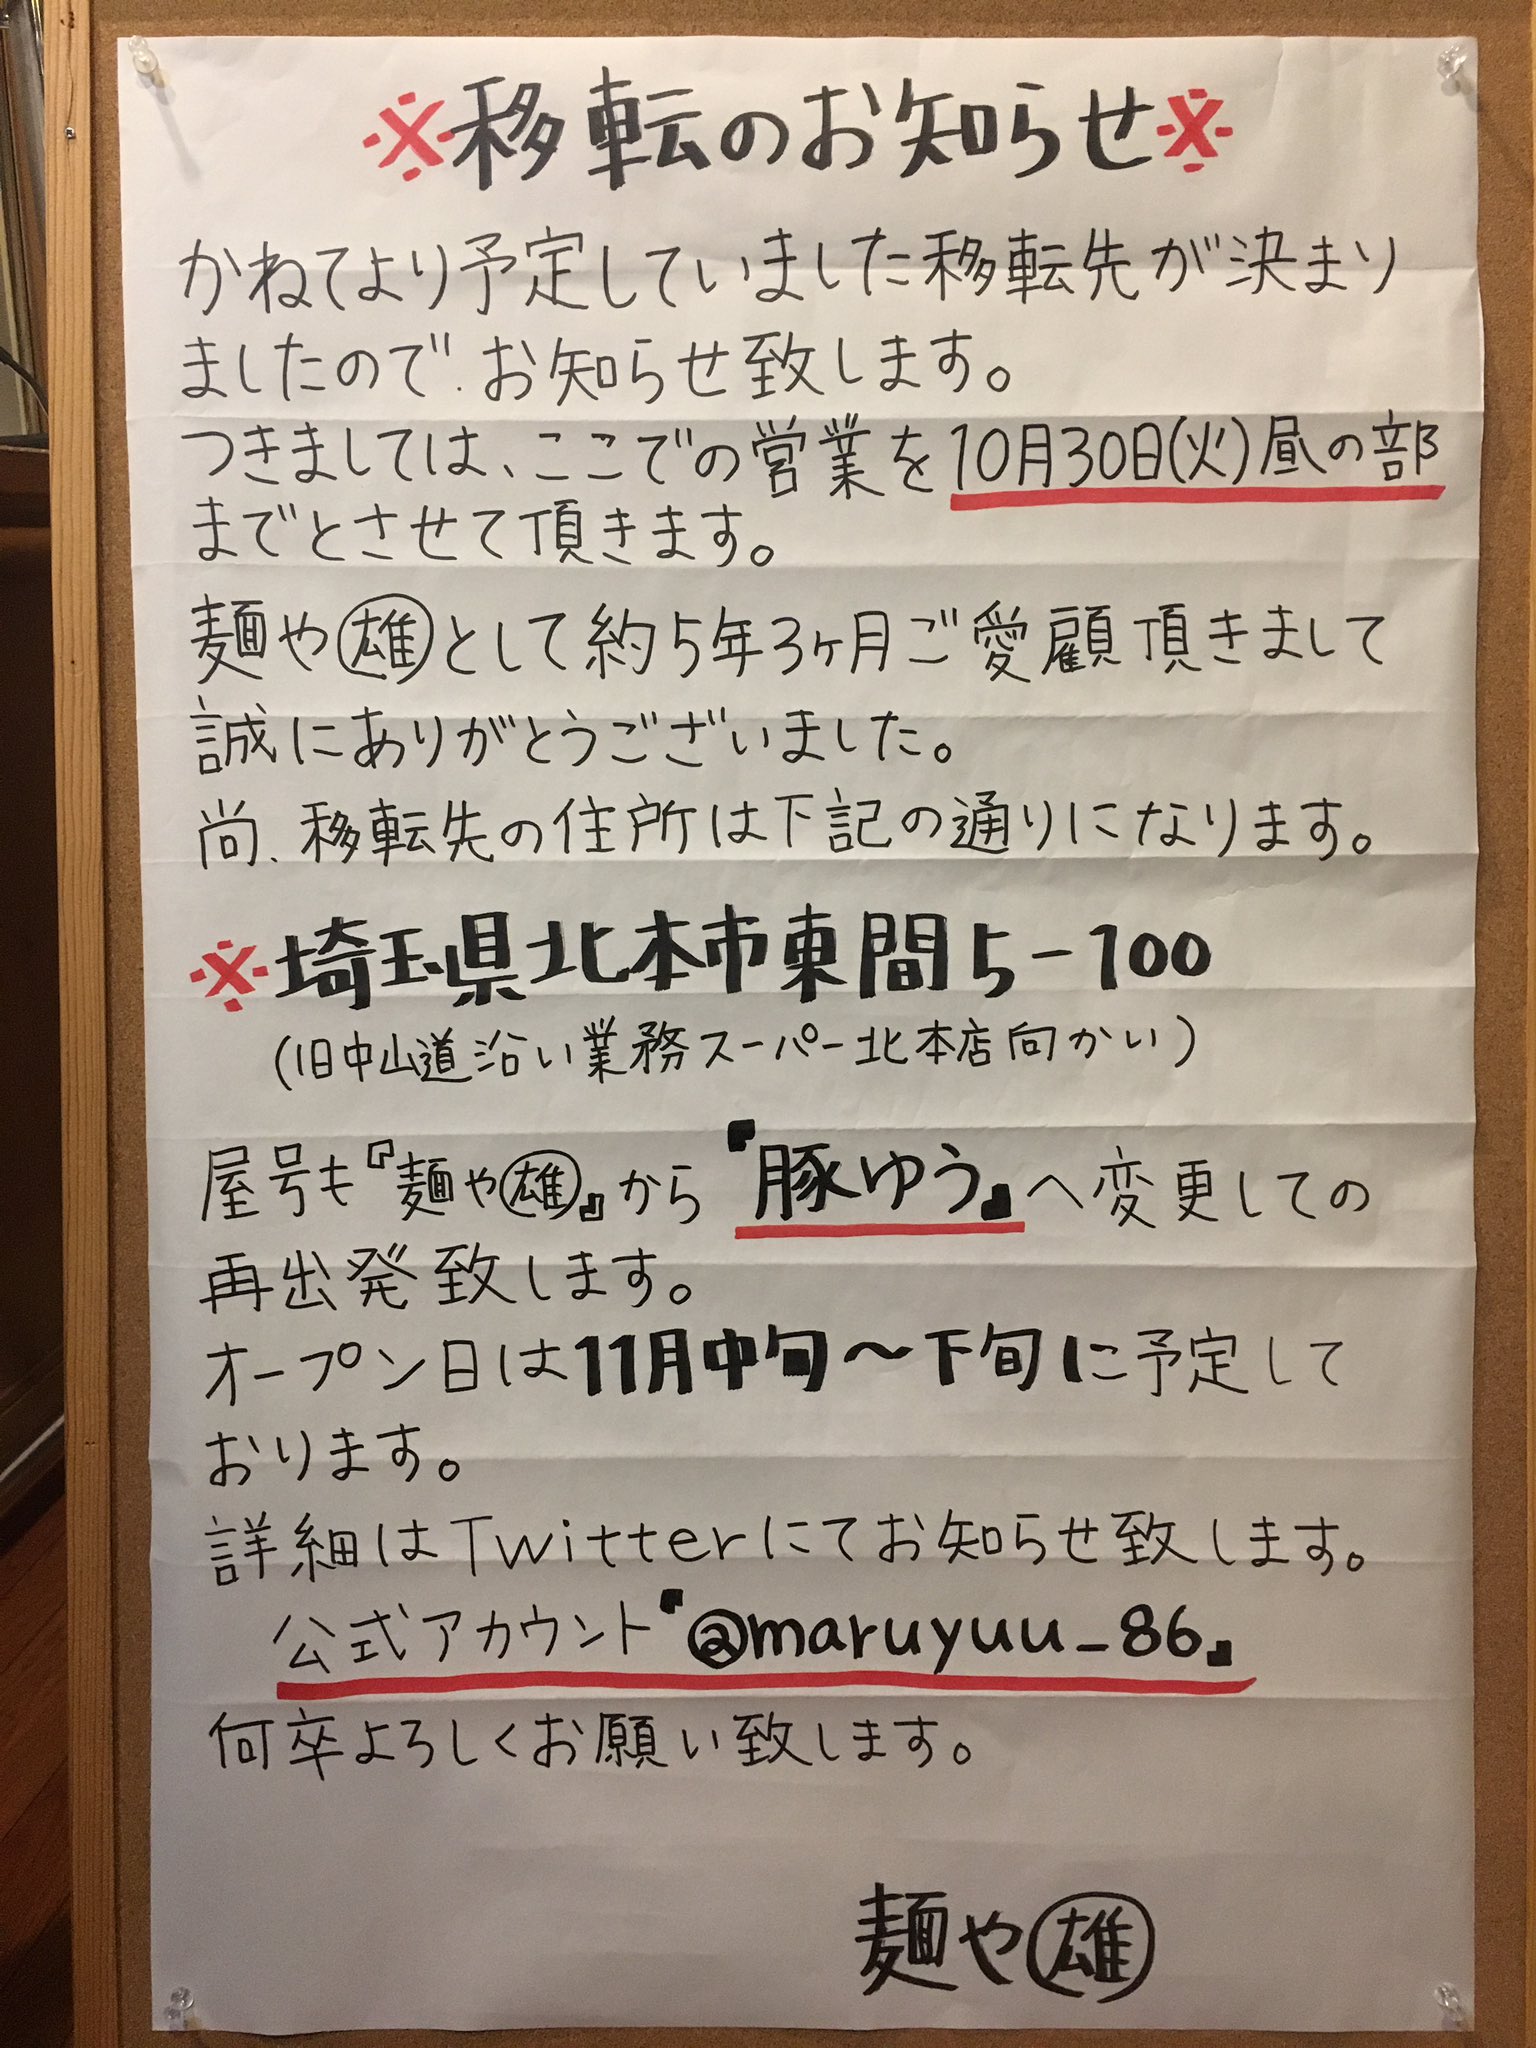 ※移転のお知らせ※
かねてより予定していました移転先が決まり
ましたので、お知らせ致します。
つきましては、ここでの営業を10月30日(火)昼の部
までとさせて頂きます。
麺や雄として約5年3ヶ月ご愛顧頂きまして
誠にありがとうございました。
尚、移転先の住所は下記の通りになります。
※埼玉県北本市東間5-100
(旧中山道沿い業務スーパー北本店向かい)
屋号も『麺や雄』から『豚ゆう』へ変更しての
再出発致します。
オープン日は11月中旬〜下旬に予定して
おります。
詳細はTwitterにてお知らせ致します。
公式アカウント『@maruyuu_86』
何卒よろしくお願い致します。
麺や雄